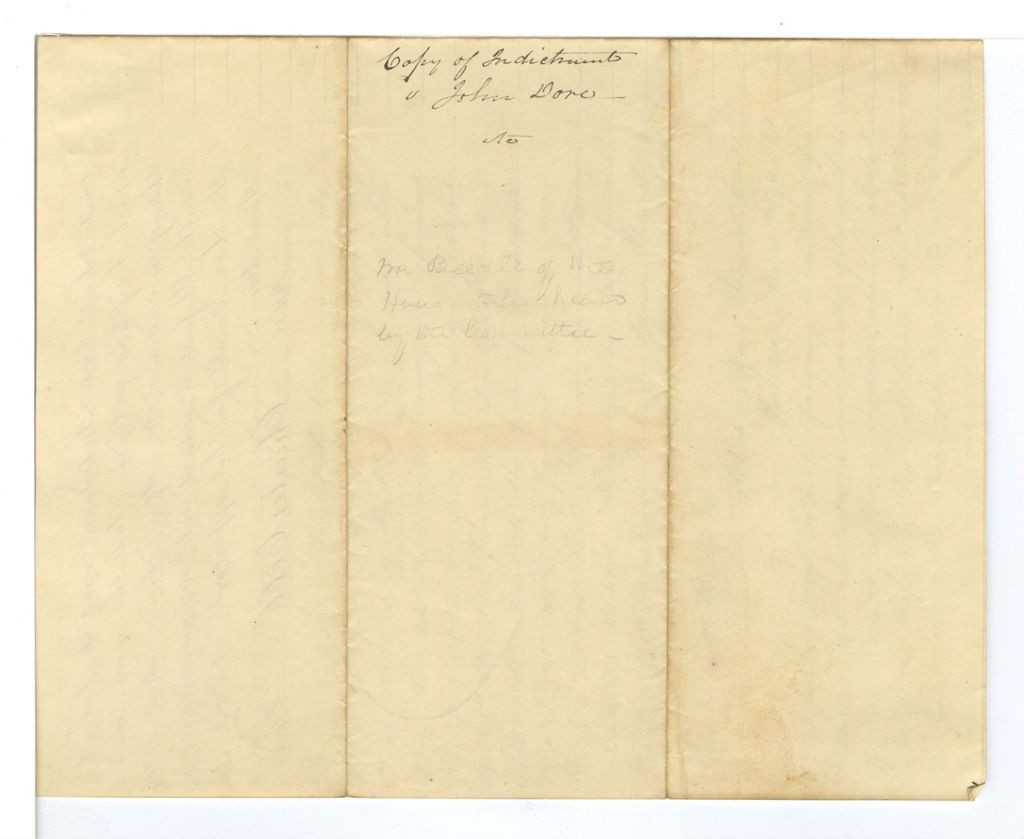 Copy of Indictment
v John Dore
Mr Beedle of the
House to be heard
by the Committee